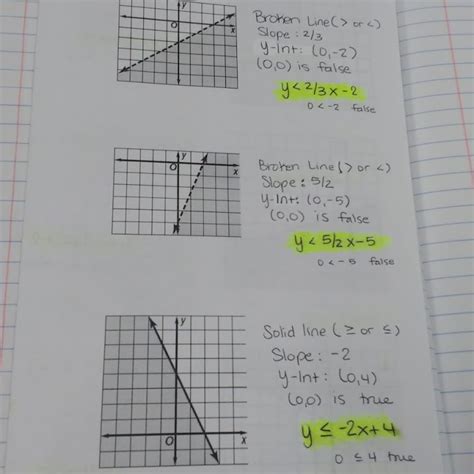 y
O
x
Broken Line (> or <)
Slope : 2/3
y-Int: (0,-2)
(0,0) is false
y < 2/3x - 2
0 < -2 false
y
O
x
Broken Line (> or <)
Slope : 5/2
y-Int: (0,-5)
(0,0) is false
y < 5/2x - 5
0 < -5 false
y
O
x
Solid line (≥ or ≤)
Slope: -2
y-Int: (0,4)
(0,0) is true
y ≤ -2x+4
0 ≤ 4 true